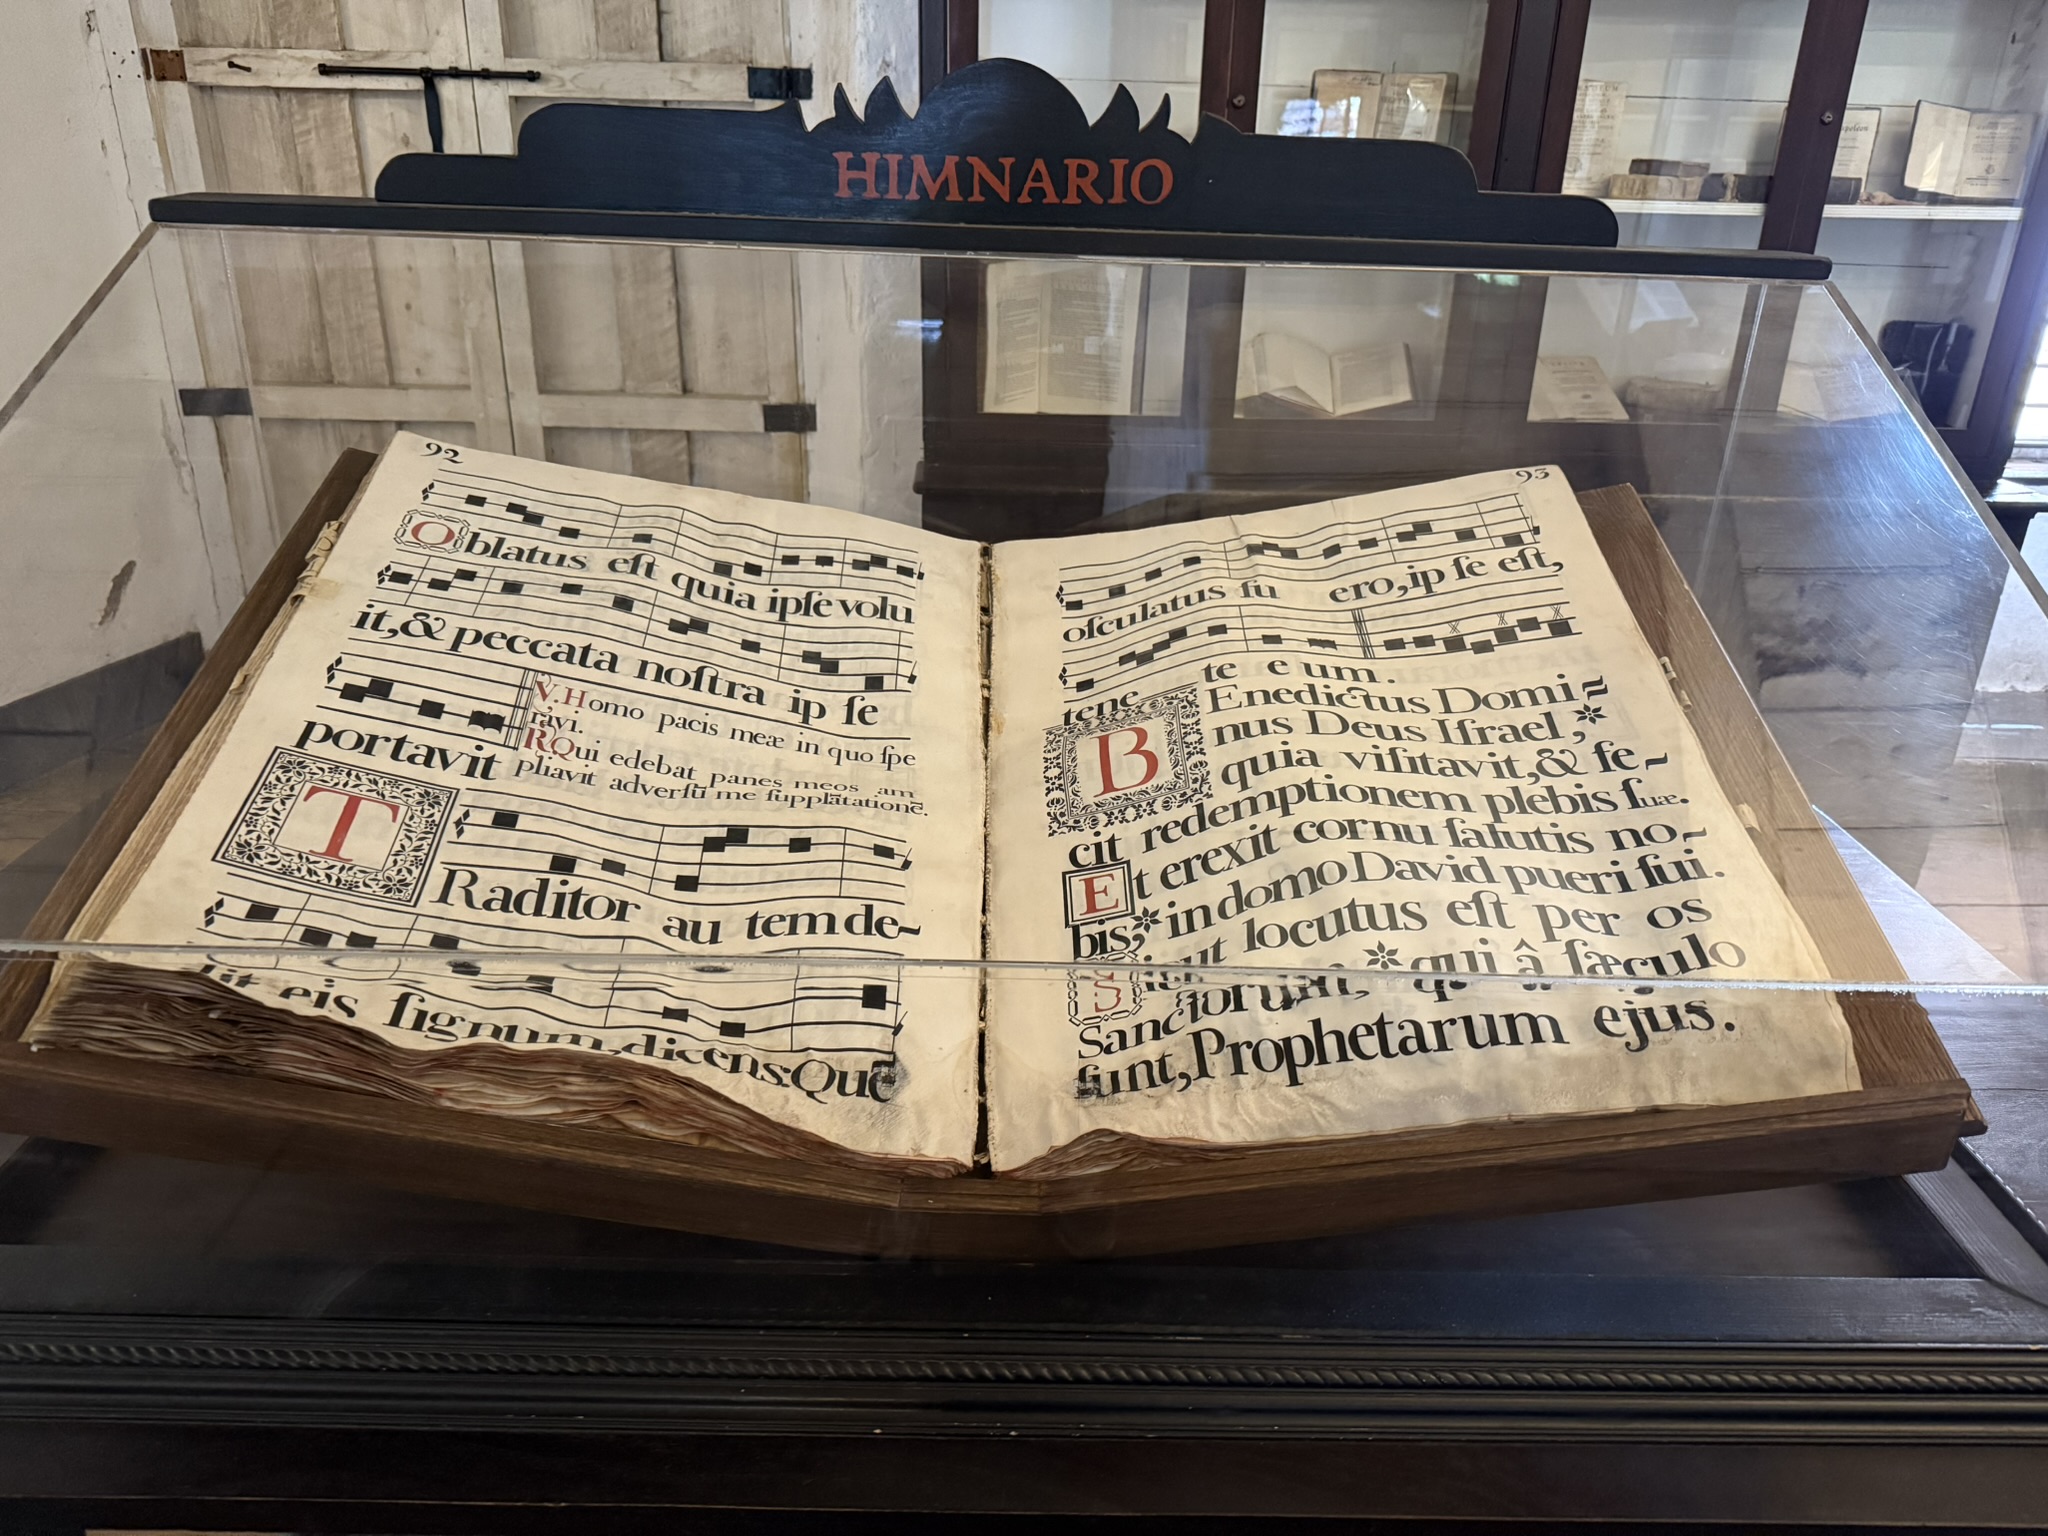 HIMNARIO
92
Oblatus eſt quia ipſe volu
it, & peccata noſtra ip ſe
portavit
V. Homo pacis meæ in quo ſpe
ravi.
R Qui edebat panes meos am
pliavit adverſũ me ſupplãtationẽ.
TRaditor au tem de~
dit eis ſignum, dicens: Quẽ
93
oſculatus fu ero, ip ſe eſt,
tene te e um.
BEnedictus Domi~
nus Deus Iſrael, *
quia viſitavit, & fe~
cit redemptionem plebis ſuæ.
Et erexit cornu ſalutis no~
bis, * in domo David pueri ſui.
Sicut locutus eſt per os
Sanctorum, * qui â ſæculo
ſunt, Prophetarum ejus.